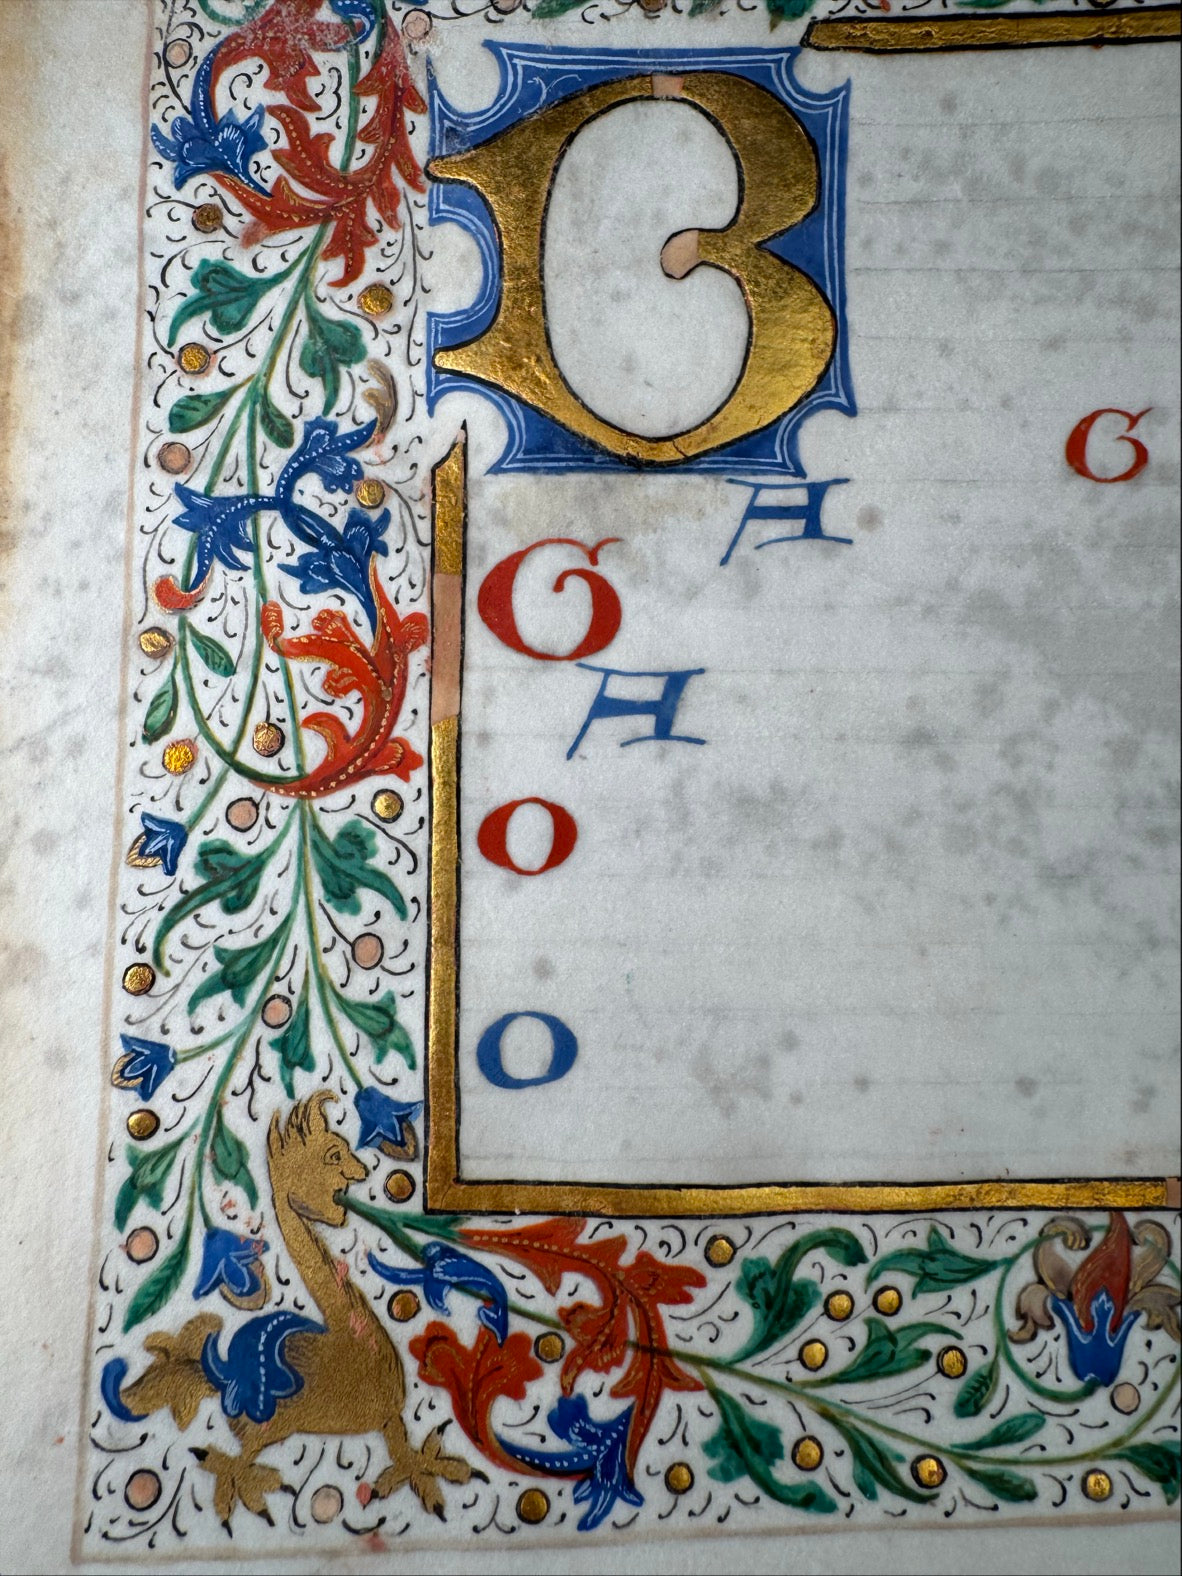 B
G
A
G
A
O
O